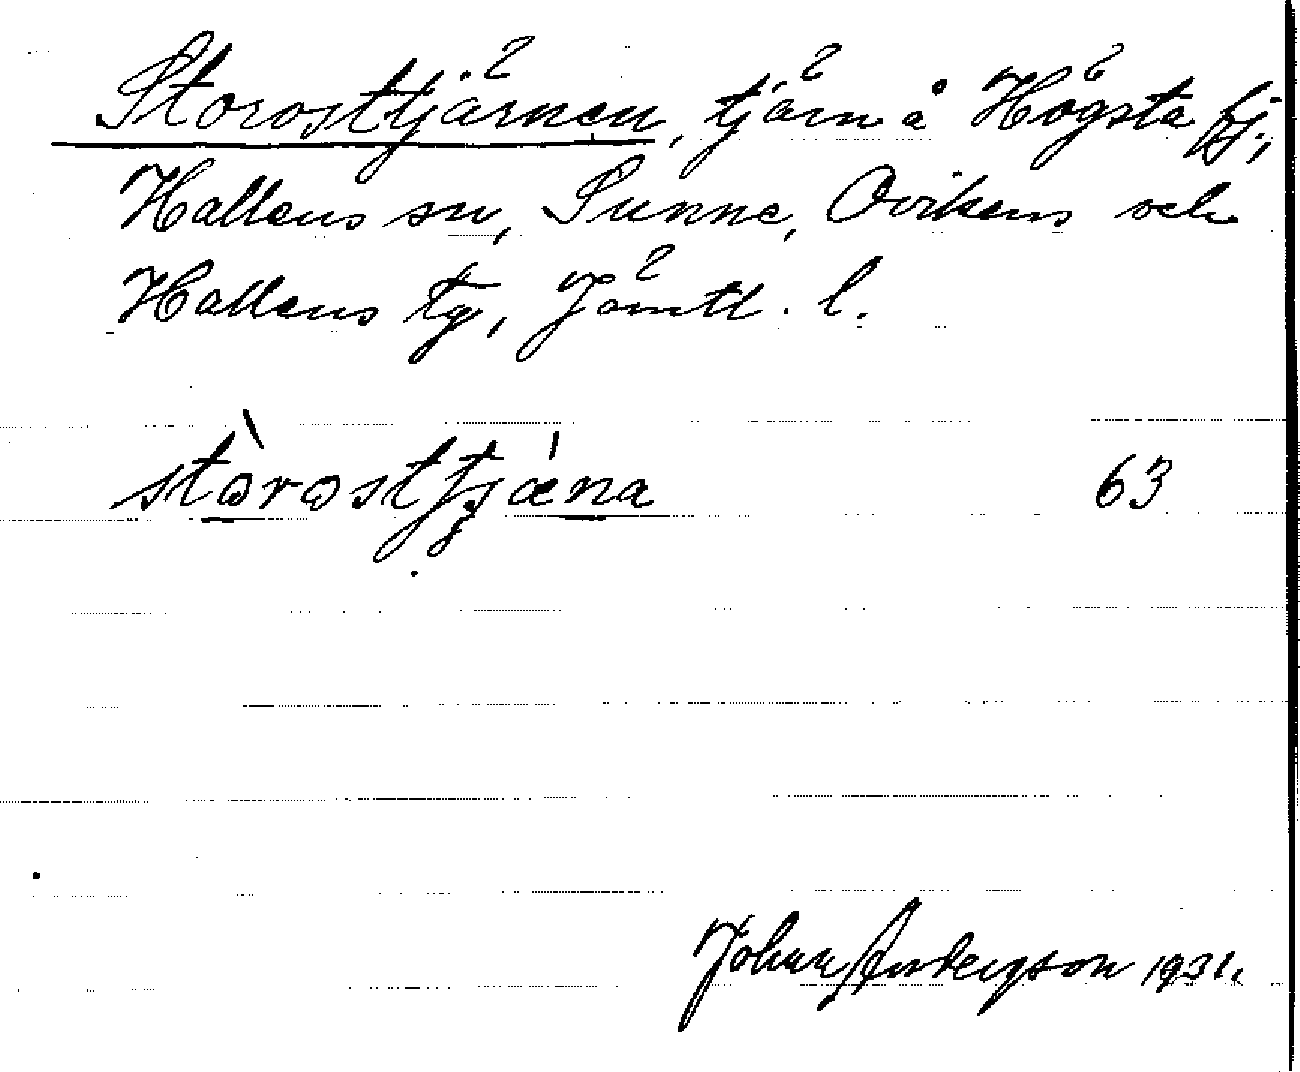 Storosttjärnen, tjärn å Högsta fj.,
Hallens sn, Sunne, Ovikens och
Hallens tg, Jämtl. l.
stòrosttjǽna 63
Johan Anderson 1931.